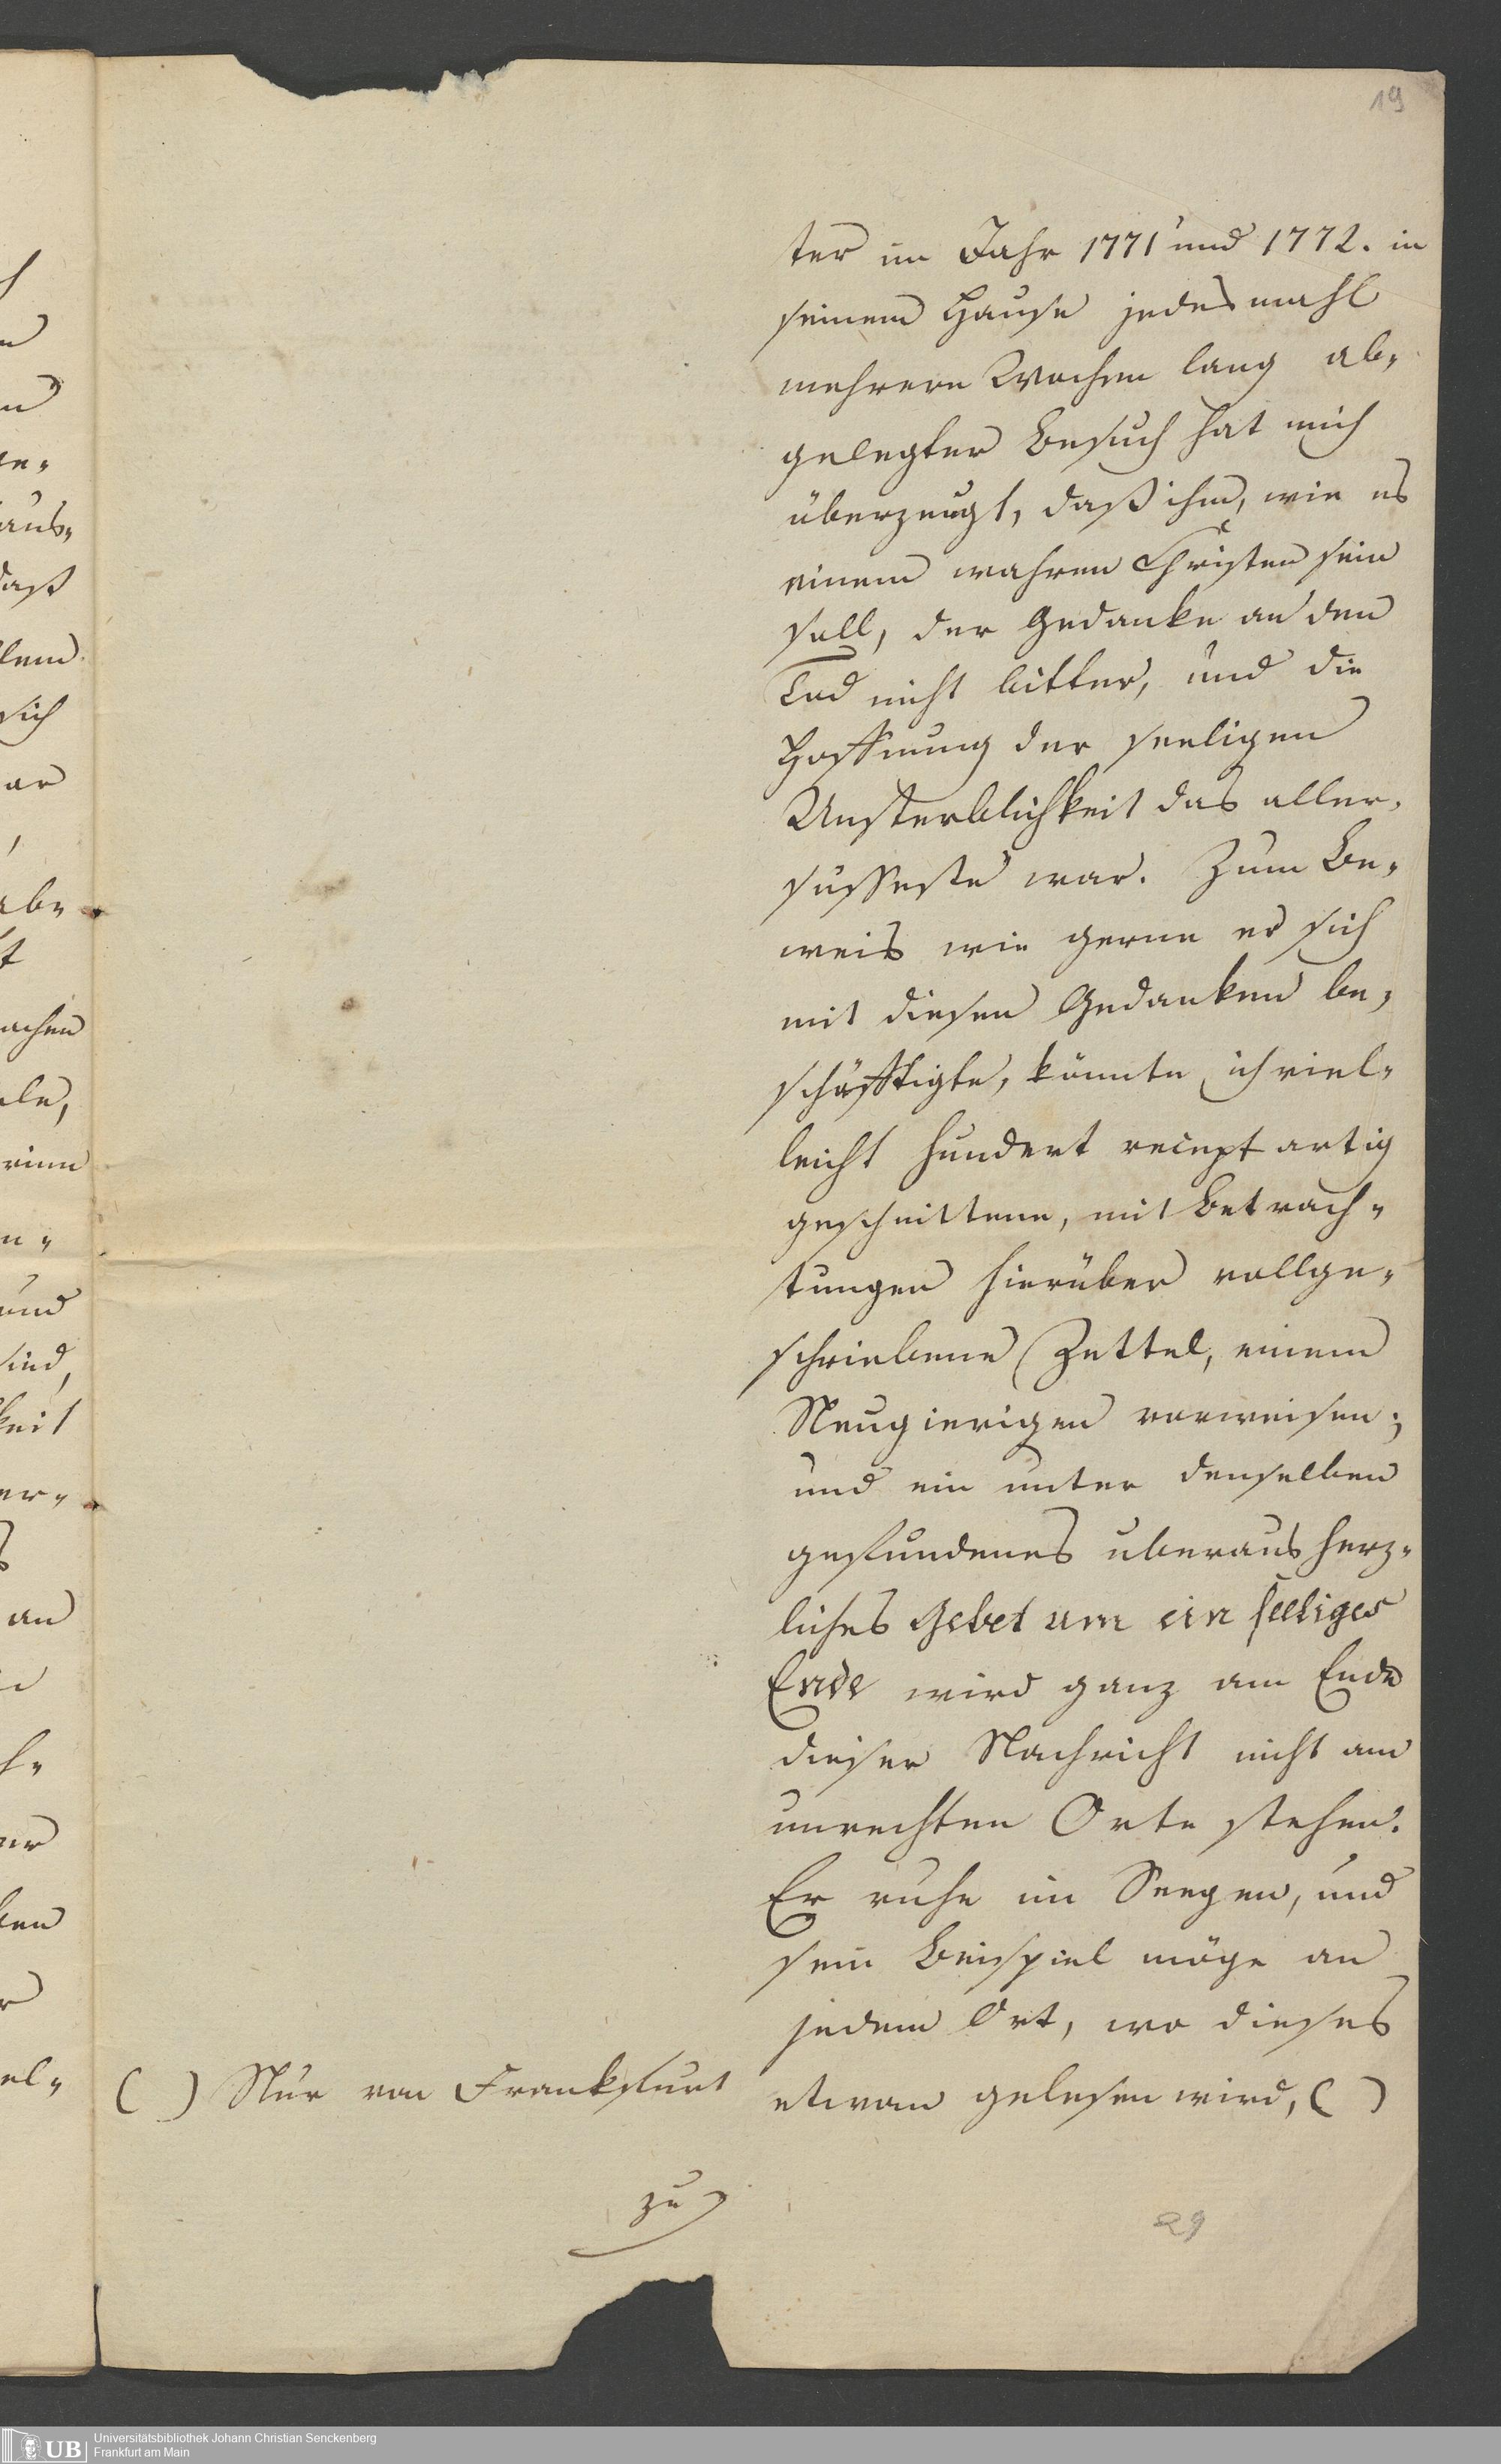 19
ter im Jahr 1771 und 1772. in
seinem Hause jedesmahl
mehrere Wochen lang ab-
gelegter Besuch hat mich
überzeugt, daß ihm, wie es
einem wahren Christen sein
soll, der Gedanke an den
Tod nicht bitter, und die
Hoffnung der seeligen
Unsterblichkeit das aller-
susseste war. Zum Be-
weis wie gerne er sich
mit diesen Gedanken be-
schäfftigte, könnte ich viel-
leicht hundert recept artig
geschnittene, mit Betrach-
tungen hierüber vollge-
schriebene Zettel, einem
Neugierigen vorweisen;
und ein unter denselben
gefundenes uberaus herz-
liches Gebet um ein seeliges
Ende wird ganz am Ende
dieser Nachricht nicht am
unrechten Orte stehen.
Er ruhe im Seegen, und
sein Beispiel möge an
jedem Ort, wo dieses
etwan gelesen wird, ( )
( ) Nur von Frankfurt
zu
29
aus-
daß
sich
ar
ab-
achen
und
sind,
keit
er-
an
el-
UB
Universitätsbibliothek Johann Christian Senckenberg
Frankfurt am Main